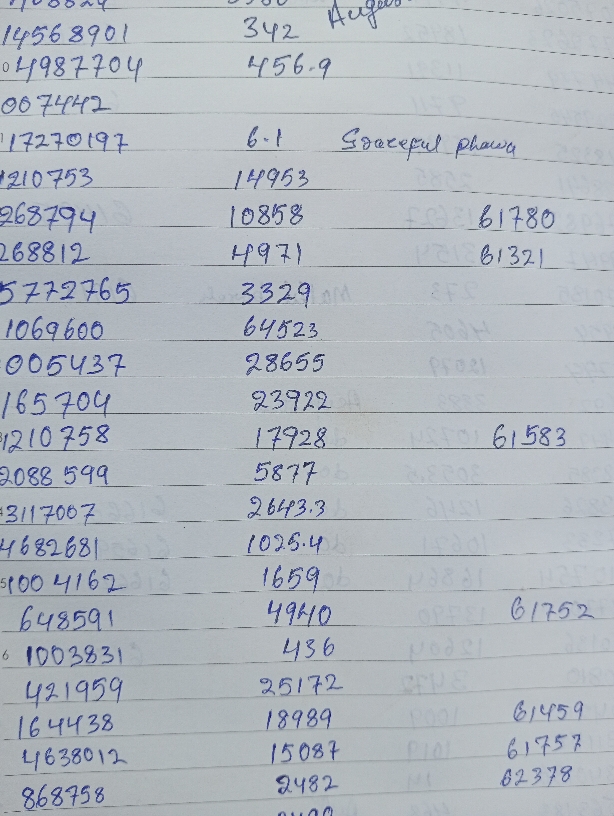 14568901 342
04987704 456.9
007442
17270197 6.1
1210753 14953
268794 10858 61780
268812 4971 61321
5772765 3329
1069600 64523
005437 28655
165704 23922
1210758 17928 61583
2088599 5877
3117007 2643.3
4682681 1025.4
51004162 1659
648591 4940 61752
6 1003831 436
421959 25172
164438 18989 61459
4638012 15087 61757
868758 2482 62378